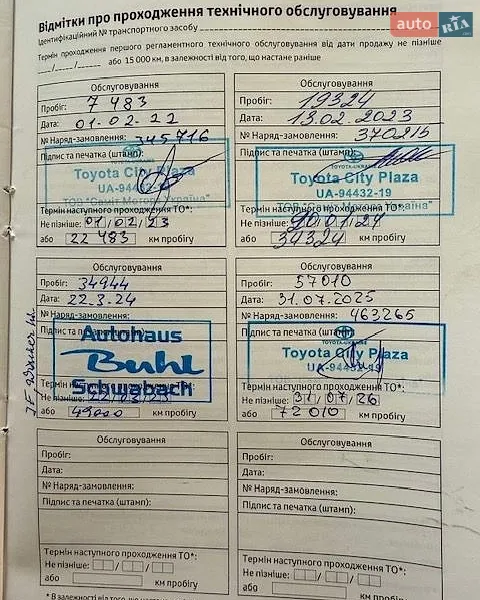 auto RIA .com
Відмітки про проходження технічного обслуговування
Ідентифікаційний № транспортного засобу
Термін проходження першого регламентного технічного обслуговування від дати продажу не пізніше
__/__/__ або 15 000 км, в залежності від того, що настане раніше
Обслуговування
Пробіг: 7 483
Дата: 01.02.22
№ Наряд-замовлення: 345716
Підпис та печатка (штамп):
Toyota City Plaza
UA-94432-
ТОВ "Семіт Моторс Україна"
Термін наступного проходження ТО*:
Не пізніше: 01/02/23
або 22 483 км пробігу
Обслуговування
Пробіг: 19324
Дата: 13.02.2023
№ Наряд-замовлення: 370215
Підпис та печатка (штамп):
TOYOTA-UKRAINE
Toyota City Plaza
UA-94432-19
Термін наступного проходження ТО*:
Не пізніше: /01/24
або 34324 км пробігу
Обслуговування
Пробіг: 34944
Дата: 22.3.24
№ Наряд-замовлення:
Підпис та печатка
Autohaus
Buhl
Schwabach
Термін наступного проходження ТО*:
Не пізніше: 22/03/25
або 49000 км пробігу
Обслуговування
Пробіг: 57010
Дата: 31.07.2025
№ Наряд-замовлення: 463265
Підпис та печатка (штамп):
TOYOTA-UKRAINE
Toyota City Plaza
UA-94432-19
Термін наступного проходження ТО*:
Не пізніше: 31/07/26
або 72010 км пробігу
Обслуговування
Пробіг:
Дата:
№ Наряд-замовлення:
Підпис та печатка (штамп):
Термін наступного проходження ТО*:
Не пізніше:
або км пробігу
Обслуговування
Пробіг:
Дата:
№ Наряд-замовлення:
Підпис та печатка (штамп):
Термін наступного проходження ТО*:
Не пізніше:
або км пробігу
* В залежності від того, що настане